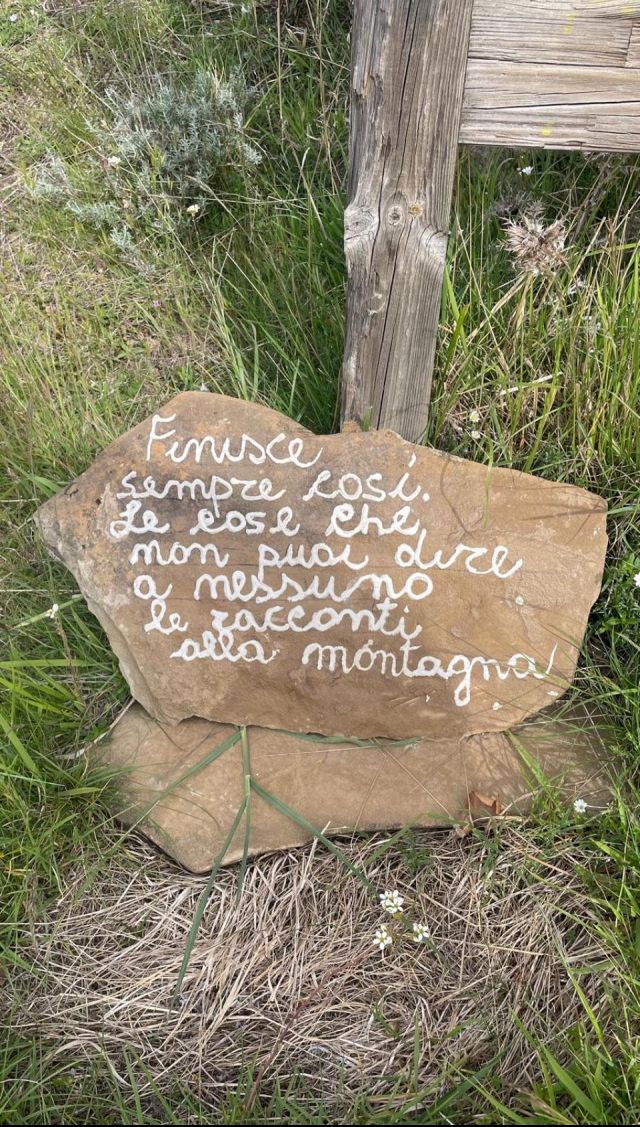 Finisce
sempre così.
Le cose che
non puoi dire
a nessuno
le racconti
alla montagna